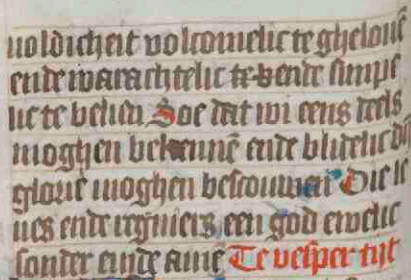 uoldicheit volcomelic te ghelouē
ende warachtelic te kende simpe
lic te belien Soe dat wi eens deels
moghen bekennē ende blidelic dī
glorie moghen bescouwen Die le
ues ende regniers een god ewelic
sonder einde amē Te vesper tijt